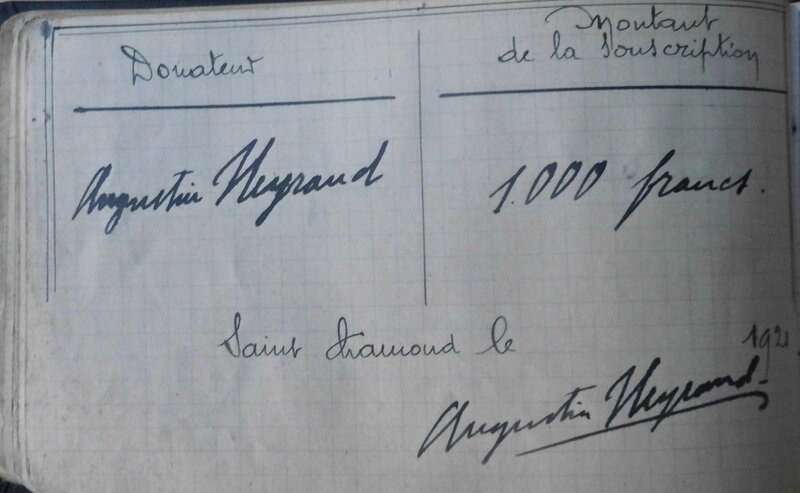 Donateur
Montant
de la Souscription
Augustin Neyrand
1.000 francs.
Saint Chamond le
192
Augustin Neyrand